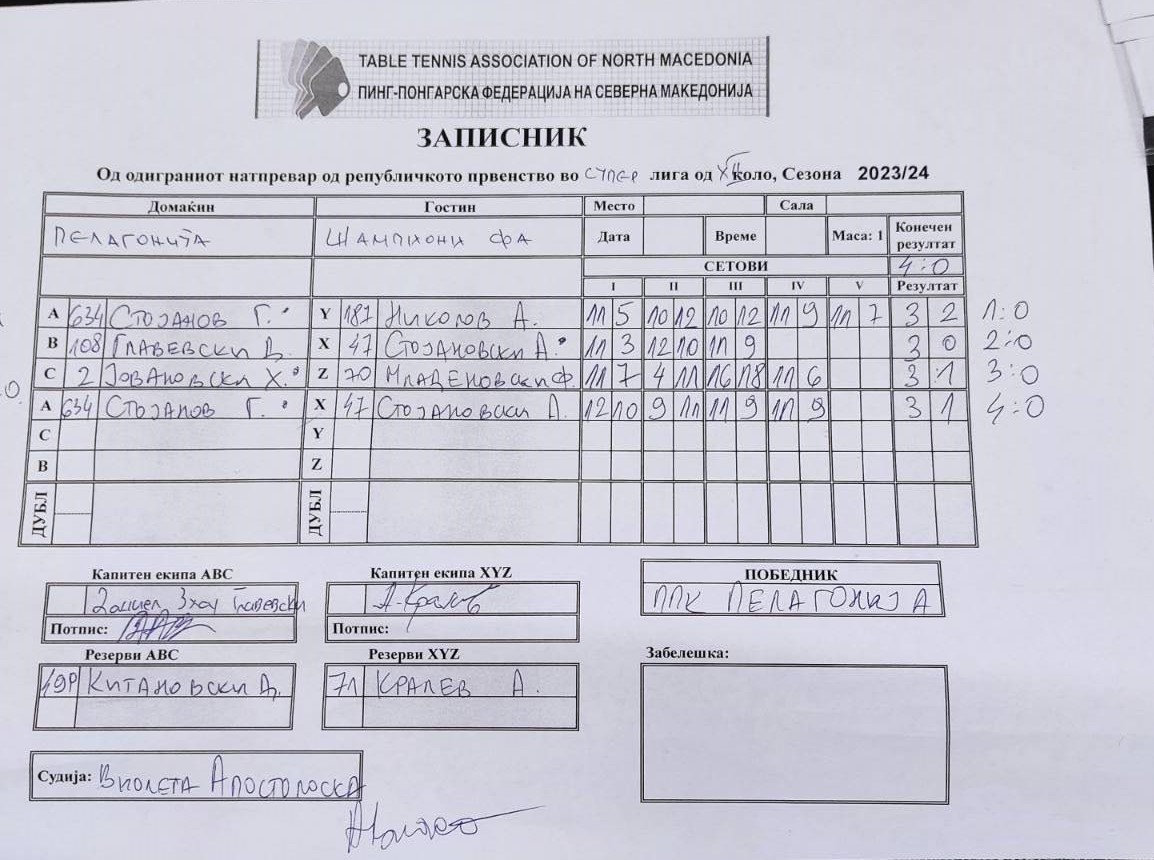 TABLE TENNIS ASSOCIATION OF NORTH MACEDONIA
ПИНГ-ПОНГАРСКА ФЕДЕРАЦИЈА НА СЕВЕРНА МАКЕДОНИЈА
ЗАПИСНИК
Од одиграниот натпревар од републичкото првенство во СУПЕР лига од коло, Сезона 2023/24
Домаќин Гостин Место Сала
ПЕЛАГОНИЈА ШАМПИОНИ ФА Дата Време Маса: 1 Конечен резултат
СЕТОВИ 4:0
I II III IV V Резултат
A 634 СТОЈАНОВ Г. Y 187 НИКОЛОВ А. 11 5 10 12 10 12 11 9 11 7 3 2 1:0
B 108 ГЛАВЕВСКИ Д. X 47 СТОЈАНОВСКИ А. 11 3 12 10 11 9 3 0 2:0
C 2 ЈОВАНОВСКИ Х. Z 70 МЛАДЕНОВСКИ Ф. 11 7 4 11 16 18 11 6 3 1 3:0
A 634 СТОЈАНОВ Г. X 47 СТОЈАНОВСКИ А. 12 10 9 11 11 9 11 9 3 1 4:0
C Y
B Z
ДУБЛ ДУБЛ
Капитен екипа ABC Капитен екипа XYZ ПОБЕДНИК
Главевски А. Кралев ППК ПЕЛАГОНИЈА
Потпис: Потпис:
Резерви ABC Резерви XYZ Забелешка:
КИТАНОВСКИ Д. 71 КРАЛЕВ А.
Судија: ВИОЛЕТА АПОСТОЛОСКА